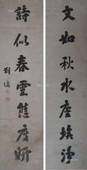 文如秋水塵埃淨
詩似春雲態度妍
劉墉